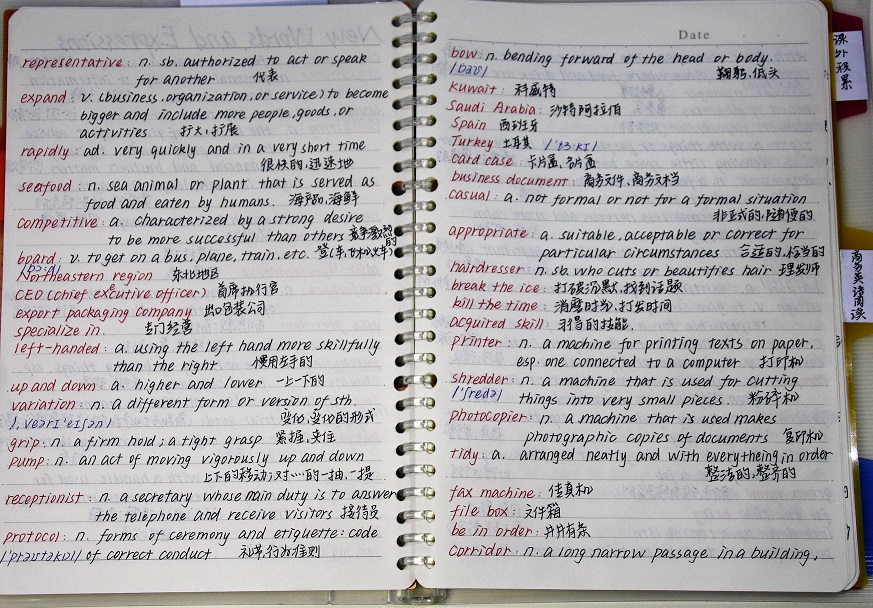 representative: n. sb. authorized to act or speak
for another 代表
expand: v. (business, organization, or service) to become
bigger and include more people, goods, or
activities 扩大, 扩展
rapidly: ad. very quickly and in a very short time
很快的, 迅速地
seafood: n. sea animal or plant that is served as
food and eaten by humans. 海产品, 海鲜
competitive: a. characterized by a strong desire
to be more successful than others 竞争激烈的
board: v. to get on a bus, plane, train, etc. 登(车,飞机,火车)
Northeastern region 东北地区
CEO (chief executive officer) 首席执行官
export packaging company 出口包装公司
specialize in. 专门经营
left-handed: a. using the left hand more skillfully
than the right 惯用左手的
up and down: a. higher and lower 一上一下的
variation: n. a different form or version of sth.
/ˌveərɪ'eɪʃən/ 变化, 变化的形式
grip: n. a firm hold; a tight grasp 紧握, 夹住
pump: n. an act of moving vigorously up and down
上下的移动; 对……的一抽、一提
receptionist: n. a secretary whose main duty is to answer
the telephone and receive visitors 接待员
protocol: n. forms of ceremony and etiquette: code
/'prəʊtəkɒl/ of correct conduct 礼节, 行为准则
Date
bow n. bending forward of the head or body.
/baʊ/ 鞠躬, 低头
Kuwait: 科威特
Saudi Arabia: 沙特阿拉伯
Spain 西班牙
Turkey 土耳其 /'tɜ:kɪ/
card case: 卡片盒、名片盒
business document: 商务文件、商务文档
casual: a. not formal or not for a formal situation
非正式的, 随便的
appropriate: a. suitable, acceptable or correct for
particular circumstances 合适的, 恰当的
hairdresser: n. sb. who cuts or beautifies hair 理发师
break the ice: 打破沉默, 找到话题
kill the time: 消磨时光、打发时间
acquired skill: 习得的技能.
printer: n. a machine for printing texts on paper,
esp. one connected to a computer 打印机
shredder: n. a machine that is used for cutting
/'ʃredə/ things into very small pieces. 粉碎机
photocopier: n. a machine that is used makes
photographic copies of documents 复印机
tidy: a. arranged neatly and with everytheing in order
整洁的, 整齐的
fax machine: 传真机
file box: 文件箱
be in order: 井井有条
corridor: n. a long narrow passage in a building,
课外积累
商务英语阅读